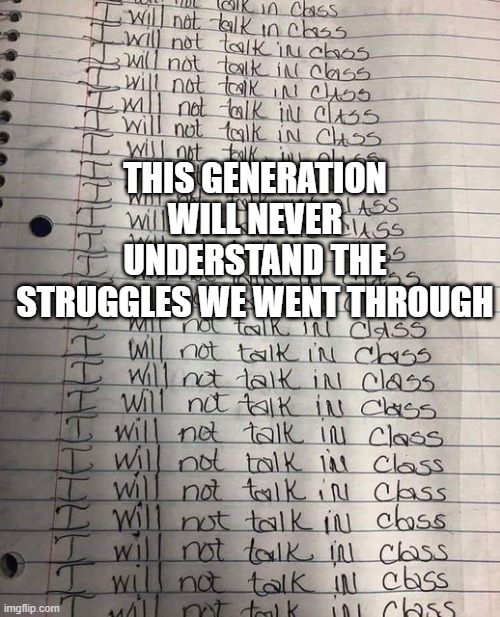 talk in Class
I will not talk in Class
I will not talk in class
I will not talk in Class
I will not talk in Class
I will not talk in Class
I will not talk in Class
I will not talk in class
THIS GENERATION
WILL NEVER
UNDERSTAND THE
STRUGGLES WE WENT THROUGH
I will not talk in Class
I will not talk in Class
I will not talk in Class
I will not talk in Class
I will not talk in Class
I will not talk in Class
I will not talk in Class
I will not talk in class
I will not talk in Class
I will not talk in Class
I will not talk in Class
imgflip.com